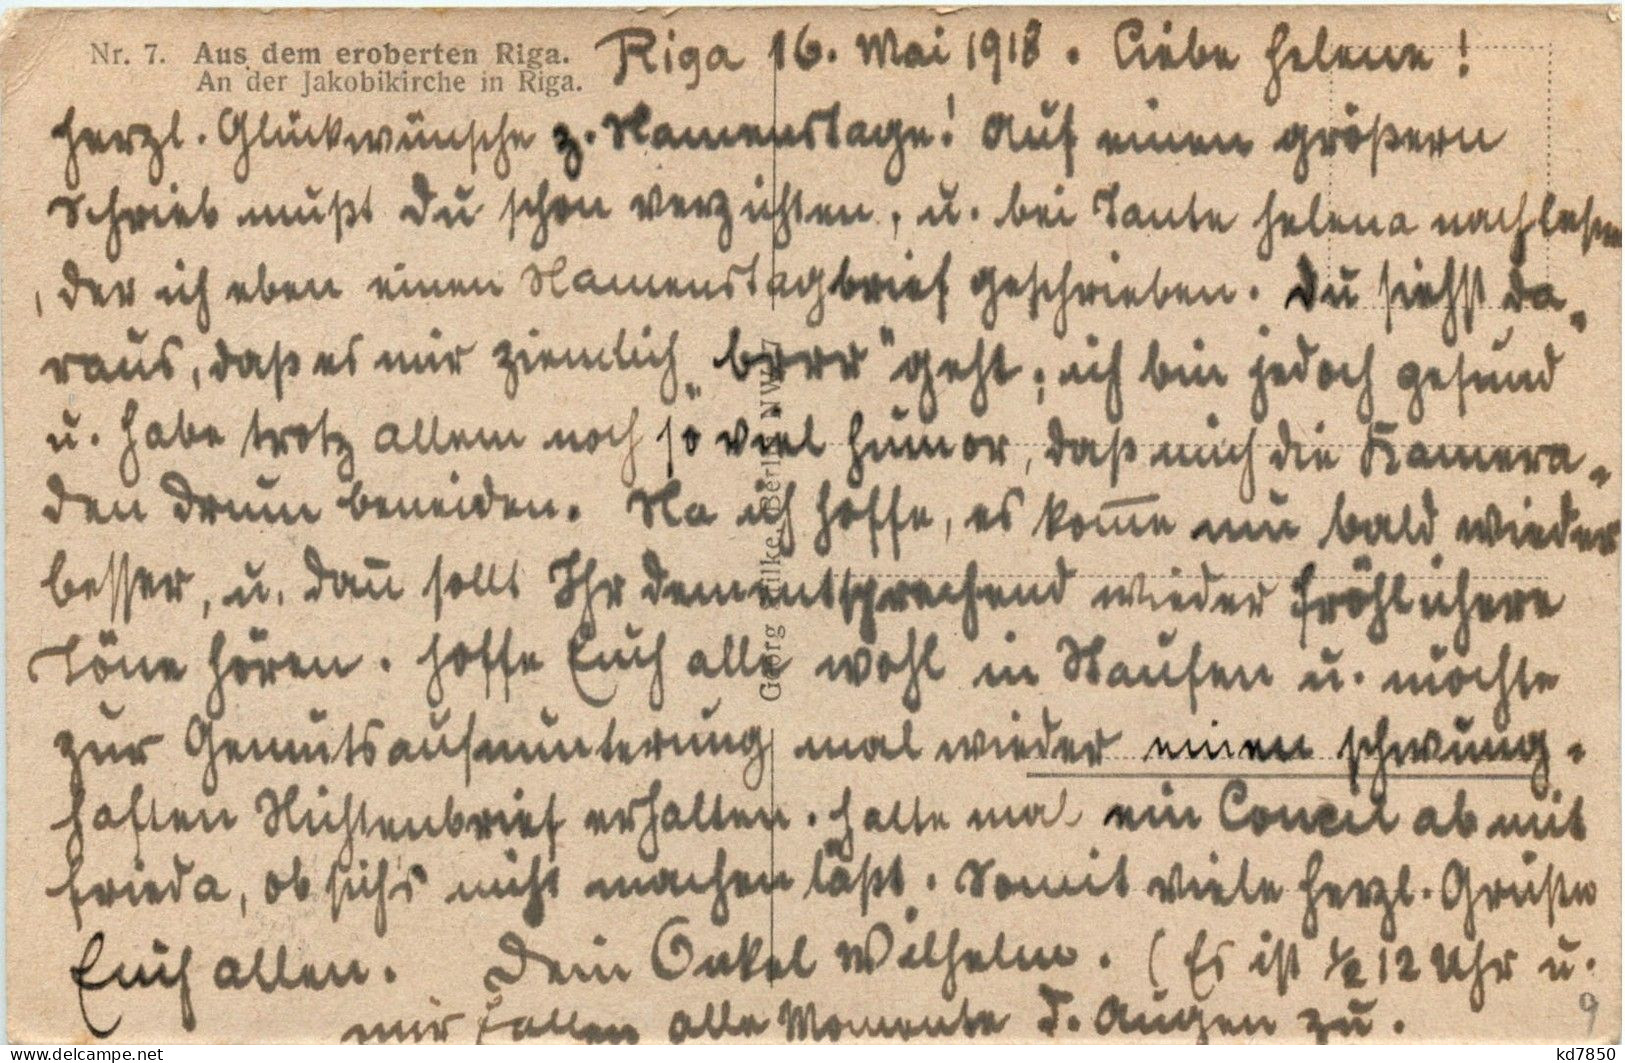 Nr. 7. Aus dem eroberten Riga.
An der Jakobikirche in Riga.
Riga 16. Mai 1918. Liebe Helene!
Herzl. Glückwünsche z. Namenstage! Auf einen größern
Schrieb mußt Du schon verzichten, u. bei Tante Helena nachlesen
, der ich eben einen Namenstagbrief geschrieben. Du siehst da-
raus, daß es mir ziemlich „brrr“ geht; ich bin jedoch gesund
u. habe trotz allem noch so viel Humor, daß mich die Kamera-
den drum beneiden. Na ich hoffe, es kom̅e nun bald wieder
besser, u. dan̅ sollt Ihr dementsprechend wieder fröhlichere
Töne hören. Hoffe Euch alle wohl in Staufen u. möchte
zur Gemütsaufmunterung mal wieder einen schwung-
haften Nichtenbrief erhalten. Halte mal ein Concil ab mit
Frieda, ob sichs nicht machen läßt. Somit viele herzl. Grüße
Euch allen. Dein Onkel Wilhelm. (Es ist ½ 12 Uhr u.
mir fallen alle Momente d. Augen zu.
9
Georg Stilke, Berlin NW. 7
kd7850